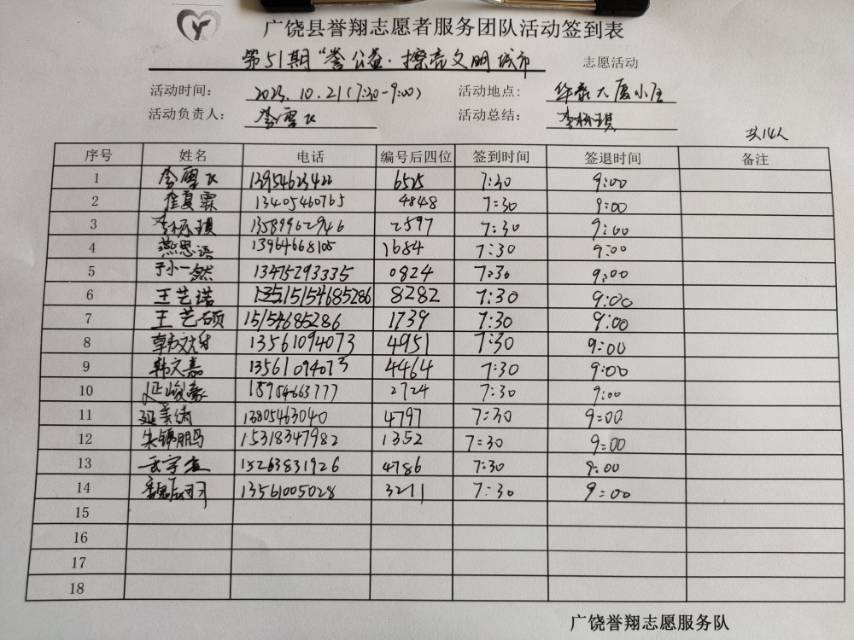 广饶县誉翔志愿者服务团队活动签到表
第51期"公益·擦亮文明城市 志愿活动
活动时间: 2023.10.21(7:30-9:00) 活动地点: 华泰大厦小区
活动负责人: 李雪飞 活动总结:
共14人
序号 姓名 电话 编号后四位 签到时间 签退时间 备注
1 李雪飞 6515 7:30 9:00
2 崔夏霖 13405460765 4848 7:30 9:00
3 13589962946 2597 7:30 9:00
4 燕思语 13964668105 1684 7:30 9:00
5 于小一然 13475293335 0824 7:30 9:00
6 王艺诺 15154685286 8282 7:30 9:00
7 王艺硕 15154685286 1739 7:30 9:00
8 13561094073 4951 7:30 9:00
9 韩文嘉 13561094073 4464 7:30 9:00
10 延峻豪 18954663777 2724 7:30 9:00
11 延美倩 13805463040 4797 7:30 9:00
12 朱锦鹏 15318347982 1352 7:30 9:00
13 15263831926 4786 7:30 9:00
14 13561005028 3211 7:30 9:00
15
16
17
18
广饶誉翔志愿服务队